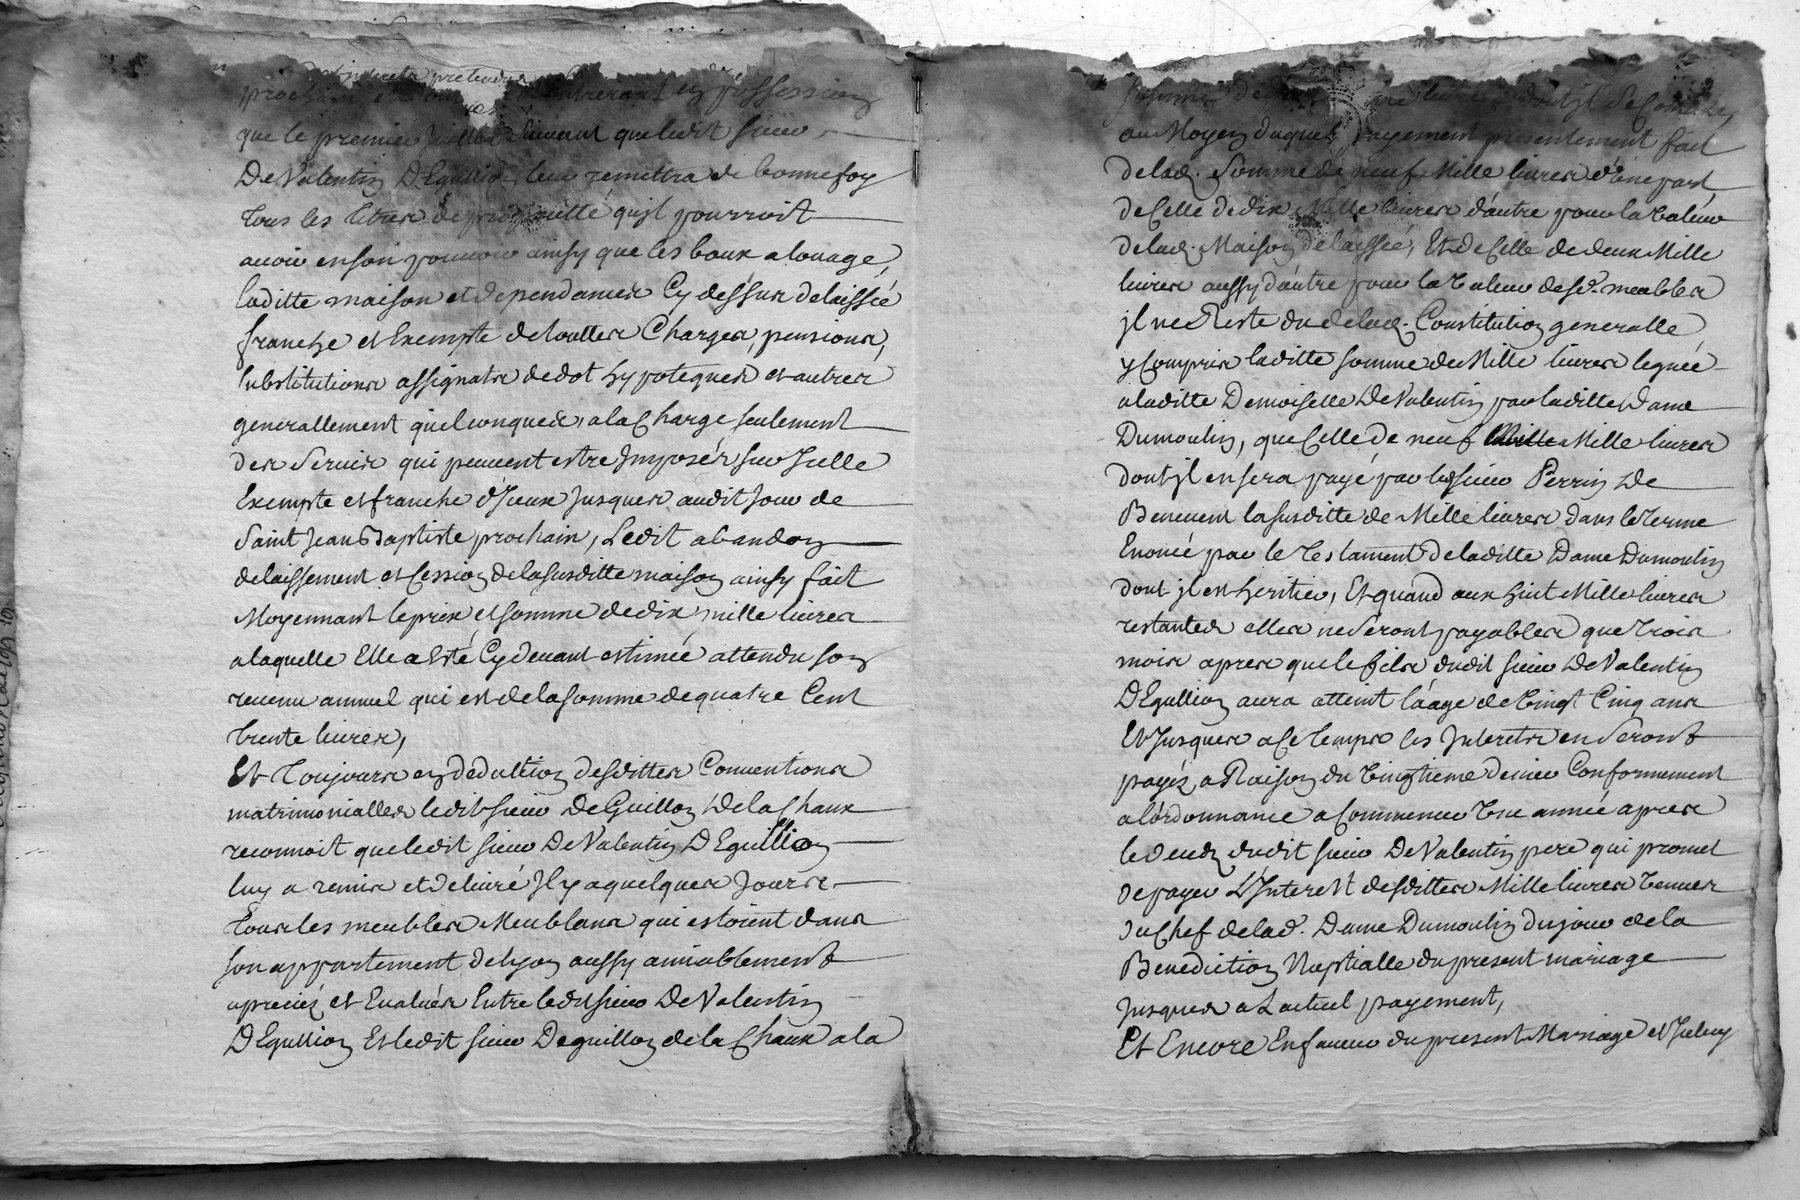 prochain entreront en possession
que le premier juillet suivant que ledit sieur
De Valentin DEgullion leur remettra de bonne foy
tous les titres de proprietté qu'jl pourroit
avoir en son pouvoir ainsy que les baux a louage,
laditte maison et dependances Cy dessus delaissée
franche et Exempte de touttes Charges, pensions,
substitutions assignats de dot hypoteques et autres
generallement quelconques, a la Charge seulement
des Servis qui peuvent estre Jmposés sur Jcelle
Exempte et franche d'Jceux Jusques audit Jour de
Saint Jean Baptiste prochain, Ledit abandon
delaissement et Cession de la susditte maison ainsy fait
Moyennant le prix et somme de dix mille livres
a laquelle Elle a Esté Cy devant estimée attendu son
revenu annuel qui est de la somme de quatre Cent
trente livres,
Et Toujours en deduction desdittes Conventions
matrimonialles ledit sieur De Guillon De la Chaux
reconnoit que ledit sieur De Valentin DEguillion
luy a remis et delivré Jl y a quelques Jours
tous les meubles Meublans qui estoient dans
son appartement de Lyon aussy amiablement
apreciés et Evalués Entre ledit sieur De Valentin
DEgullion Et ledit sieur Deguillon de la Chaux a la
somme de
au Moyen duquel payement presentement fait
de lad. Somme de neuf Mille livres d'une part
de Celle de dix Mille livres d'autre pour la valeur
de lad. Maison delaissée, Et de Celle de deux Mille
livres aussy d'autre pour la valeur desd. meubles
jl ne Reste du de lad. Constitution generalle
y Compris laditte somme de Mille livres leguée
a laditte Demoiselle De Valentin par laditte Dame
Dumoulin, que Celle de neuf Mille livres
dont jl en sera payé par led. sieur Perrin De
Benevent la susditte de Mille livres dans le terme
Enoncé par le Testament de laditte Dame Dumoulin
dont jl est heritier, Et quand aux huit Mille livres
restantes elles ne seront payables que trois
mois apres que le fils dudit sieur De Valentin
DEgullion aura atteint l'âage de vingt Cinq ans
Et Jusques a Ce temps les Jnterets en Seront
payés a Raison du vingtieme denier Conformement
a l'ordonnance a Commencer une année apres
le deces dudit sieur De Valentin pere qui promet
de payer L'Interest desdittes Mille livres venues
du Chef de lad. Dame Dumoulin du jour de la
Benediction Nuptialle du present mariage
Jusques a Lactuel payement,
Et Encore En faveur du present Mariage et Jceluy